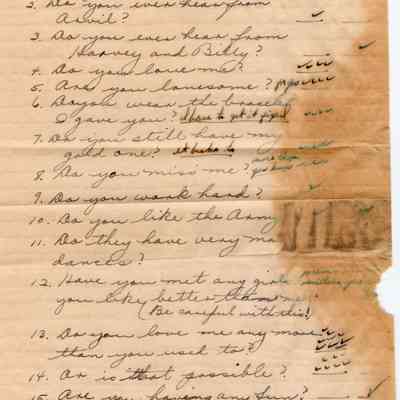 2. Do you ever hear from
Arvil?
3. Do you ever hear from
Harvey and Billy?
4. Do you love me?
5. Are you lonesome? yes
6. Do you wear the bracelet
I gave you? I have to get it fixed
7. Do you still have my
gold one?
8. Do you miss me?
9. Do you work hard?
10. Do you like the Army
11. Do they have very ma
dances?
12. Have you met any girls
you like better than me?
(Be careful with this!)
13. Do you love me any more
than you used to?
14. Or is that possible?
15. Are you having any fun?